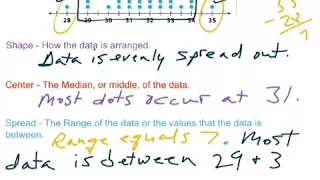 35
- 28
7
28 29 30 31 32 33 34 35
Shape - How the data is arranged.
Data is evenly spread out.
Center - The Median, or middle, of the data.
Most dots occur at 31.
Spread - The Range of the data or the values that the data is
between. Range equals 7. Most
data is between 29 + 3